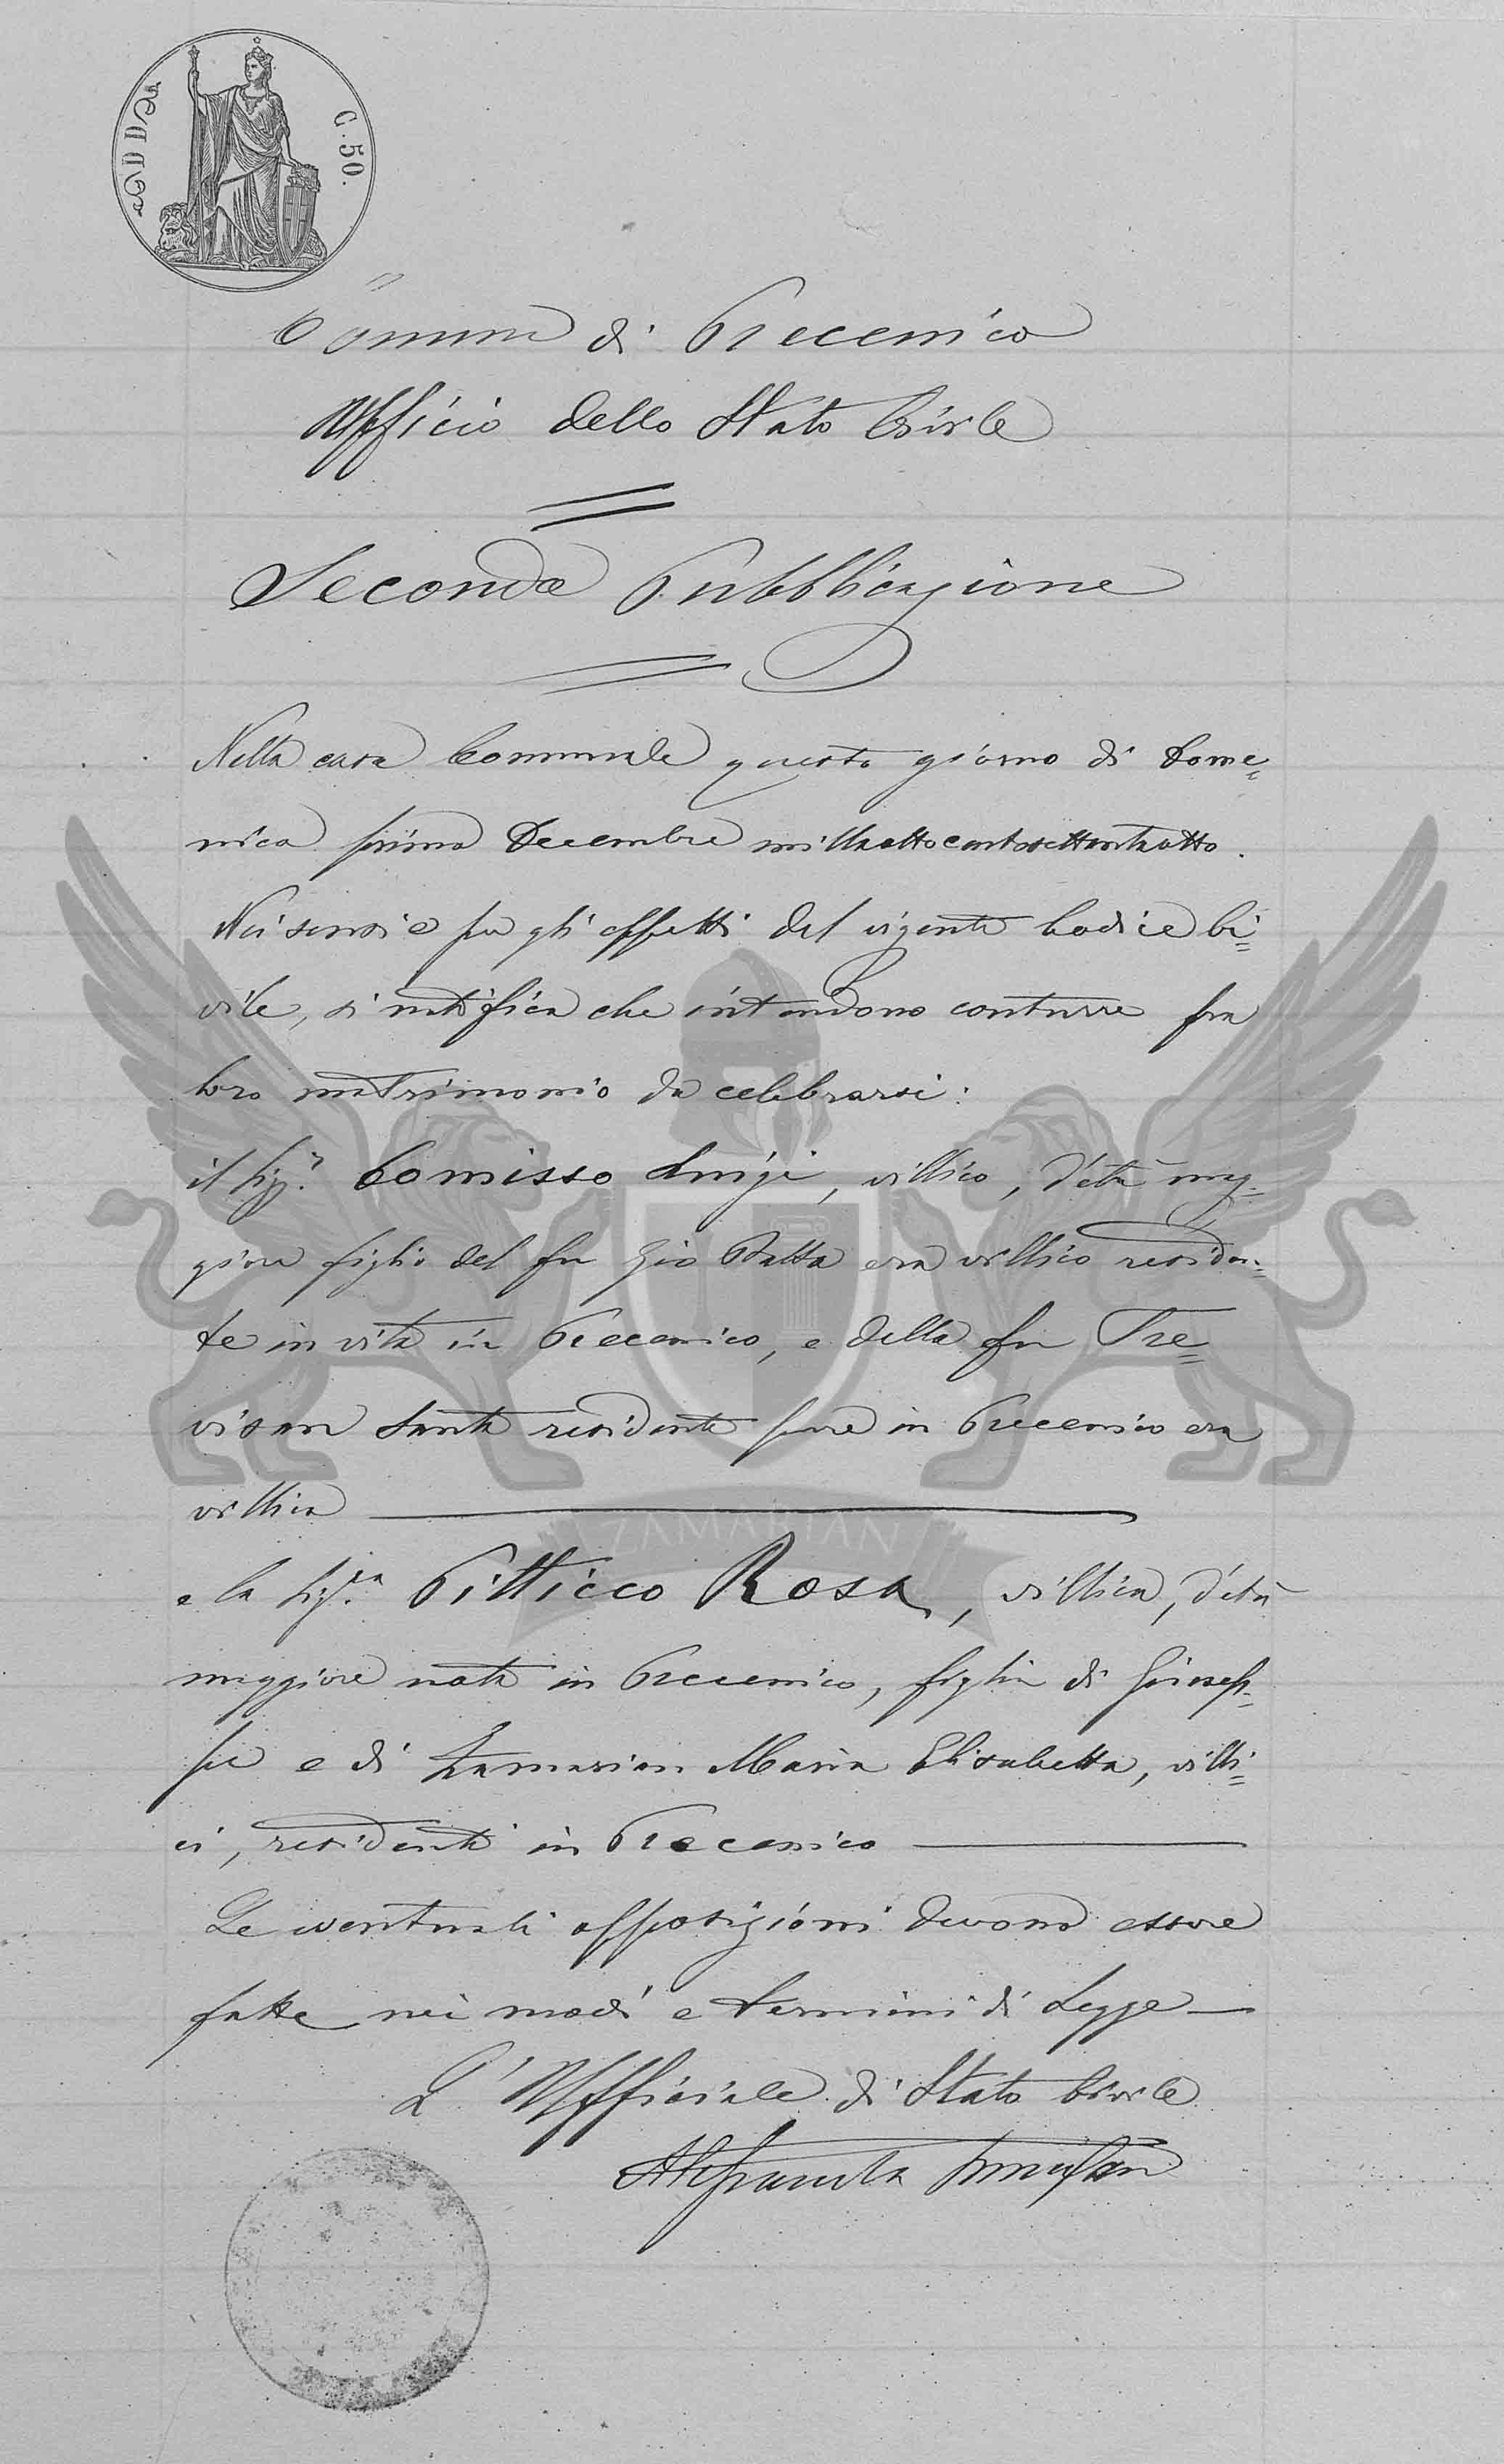 C. 50.
Comune di Precenico
Ufficio dello Stato Civile
Seconda Pubblicazione
Nella casa Communale questo giorno di Dome=
nica primo Decembre milleottocentosettantaotto.
Nei sensi e per gli effetti del vigente Codice Ci=
vile, si notifica che intendono contrarre fra
loro matrimonio da celebrarsi:
il Sig.r Comisso Luigi, villico, d'età mag=
giore figlio del fu Gio Batta era villico residen=
te in vita in Precenico, e della fu Tre=
visan Santa residente pure in Precenico era
villica
ZAMARIAN
e la Sig.ra Pitticco Rosa, villica, d'età
maggiore nata in Precenico, figlia di Giusep=
pe e di Zamarian Maria Elisabetta, villi=
ci, residenti in Precenico
Le eventuali opposizioni devono essere
fatte nei modi e termini di Legge
L'Ufficiale di Stato Civile